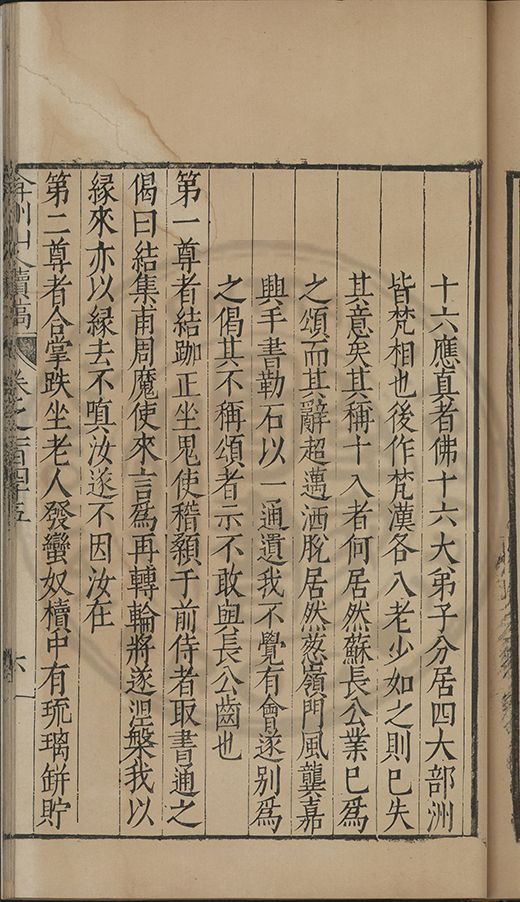 十六應真者佛十六大弟子分居四大部洲
皆梵相也後作梵漢各八老少如之則已失
其意矣其稱十八者何居然蘇長公業已爲
之頌而其辭超邁洒脫居然葱嶺門風龔嘉
興手書勒石以一通遺我不覺有會遂别爲
之偈其不稱頌者示不敢與長公齒也
第一尊者結跏正坐鬼使稽顙于前侍者取書通之
偈曰結集甫周魔使來言爲再轉輪將遂涅槃我以
緣來亦以緣去不嗔汝遂不因汝在
第二尊者合掌趺坐老人發蠻奴櫝中有琉璃缾貯
弇州山人續稿 卷之一百四十五 六